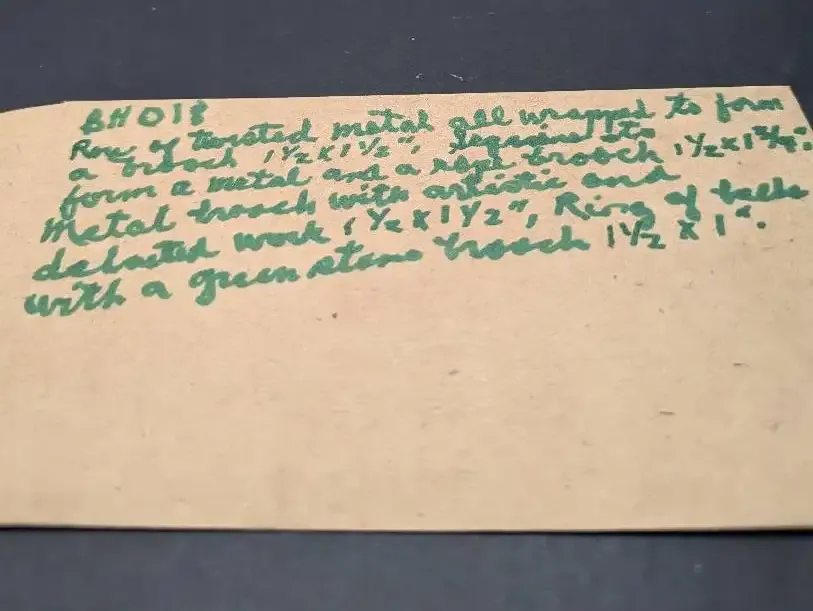 BH 018
Row of twisted metal all wrapped to form
a brooch 1 1/2 x 1 1/2",
form a metal and a rope brooch 1 1/2 x 1 3/4".
Metal brooch with artistic and
work 1 1/2 x 1 1/2", Ring of balls
with a green stone brooch 1 1/2 x 1".